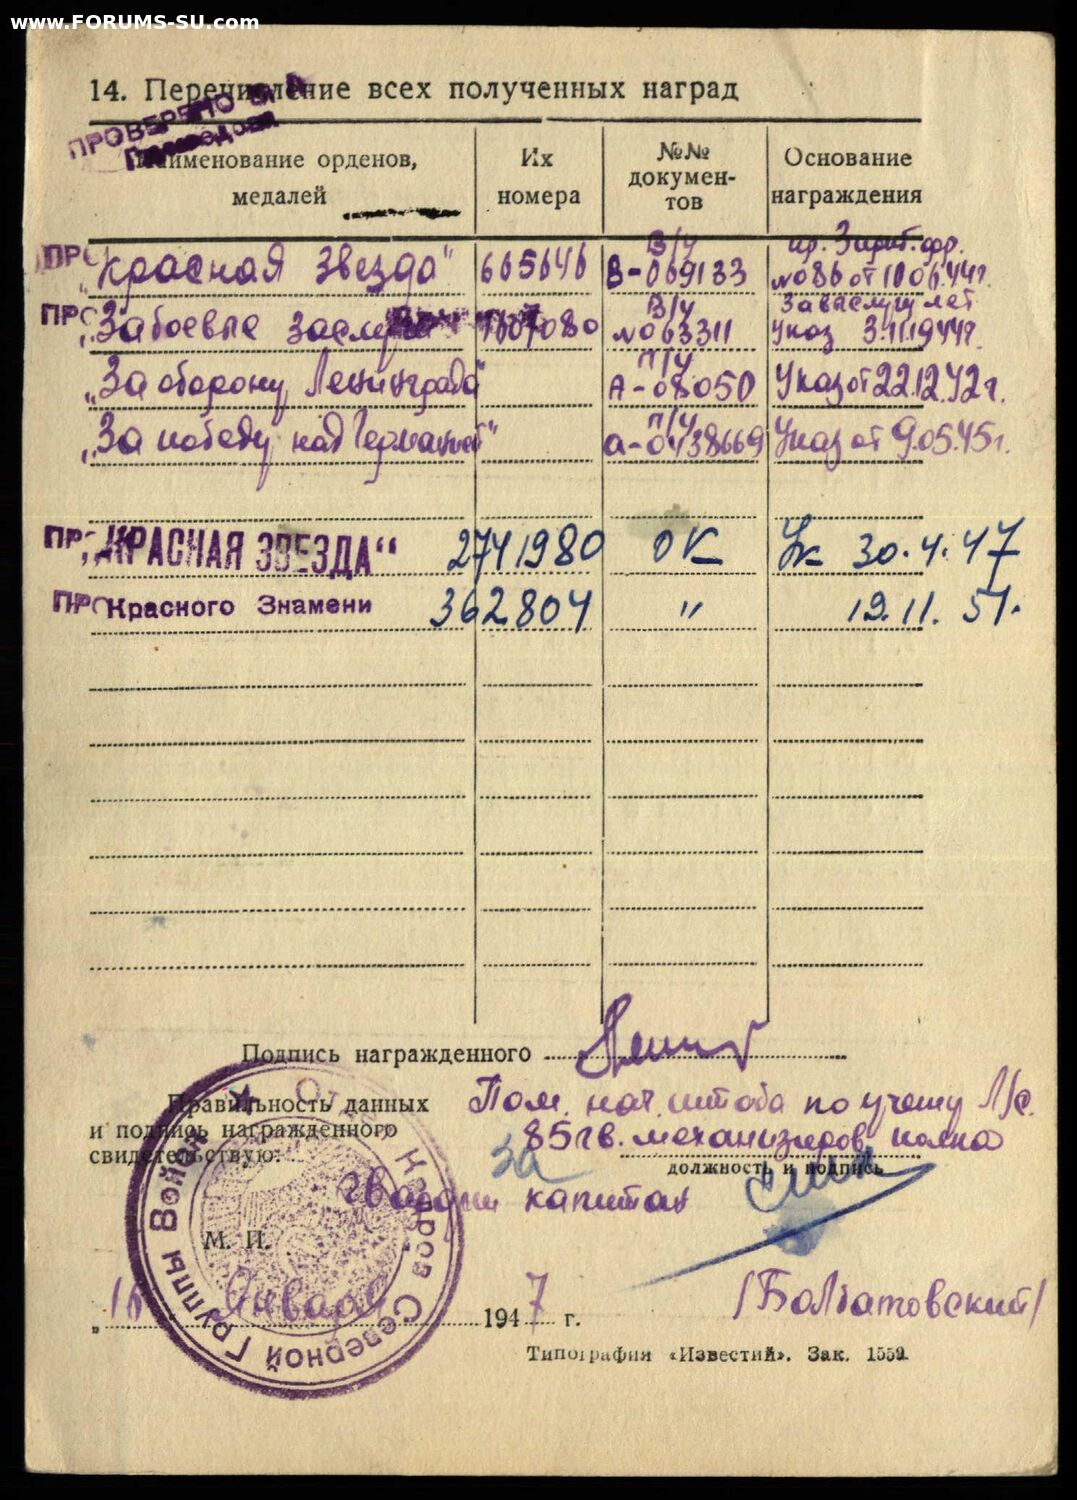 www.FORUMS-SU.com
14. Перечисление всех полученных наград
ПРОВЕРЕНО
Наименование орденов, медалей
Их номера
№№ документов
Основание награждения
„Красная Звезда" 665646 В/ч В-069133 пр. 3 приб. фр. №086 от 10.06.44г.
„За боевые заслуги" 1007080 В/ч №063311 За выслугу лет Указ 3.11.1944г.
„За оборону Ленинграда" П/у А-08050 Указ от 22.12.42г.
„За победу над Германией" П/у а-0438669 Указ от 9.05.45г.
„КРАСНАЯ ЗВЕЗДА“ 2741980 ОК Ук 30.4.47
Красного Знамени 362804 " 19.11.51.
Подпись награжденного
Правильность данных
и подпись награжденного
свидетельствую:
Пом. нач. штаба по учету л/с.
85 гв. механизиров. полка
должность и подпись
за
гвардии капитан
М. П.
Отдел Кадров Северной Группы Войск
„16 Января 1947 г.
/Болтатовский/
Типография «Известий». Зак. 1559.